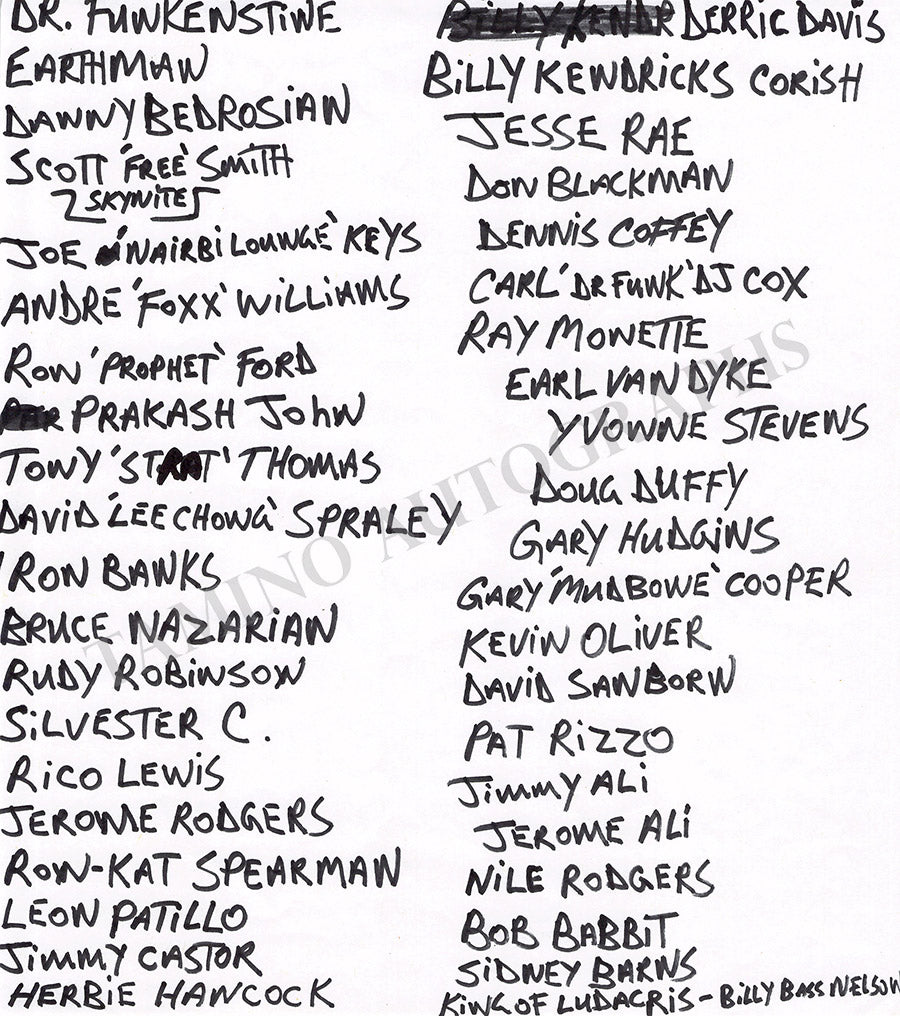 DR. FUNKENSTINE
EARTHMAN
DANNY BEDROSIAN
SCOTT 'FREE' SMITH
SKYNITE
JOE 'NAIRBI LOUNGE' KEYS
ANDRE 'FOXX' WILLIAMS
RON 'PROPHET' FORD
PRAKASH JOHN
TONY 'STRAT' THOMAS
DAVID 'LEE CHONG' SPRALEY
RON BANKS
BRUCE NAZARIAN
RUDY ROBINSON
SILVESTER C.
RICO LEWIS
JEROME RODGERS
RON-KAT SPEARMAN
LEON PATILLO
JIMMY CASTOR
HERBIE HANCOCK
BILLY KENDR DERRIC DAVIS
BILLY KENDRICKS CORISH
JESSE RAE
DON BLACKMAN
DENNIS COFFEY
CARL 'DR FUNK' DJ COX
RAY MONETTE
EARL VAN DYKE
YVONNE STEVENS
DOUG DUFFY
GARY HUDGINS
GARY 'MUDBOWE' COOPER
KEVIN OLIVER
DAVID SANBORN
PAT RIZZO
JIMMY ALI
JEROME ALI
NILE RODGERS
BOB BABBIT
SIDNEY BARNS
KING OF LUDACRIS - BILLY BASS NELSON
TAMINO AUTOGRAPHS